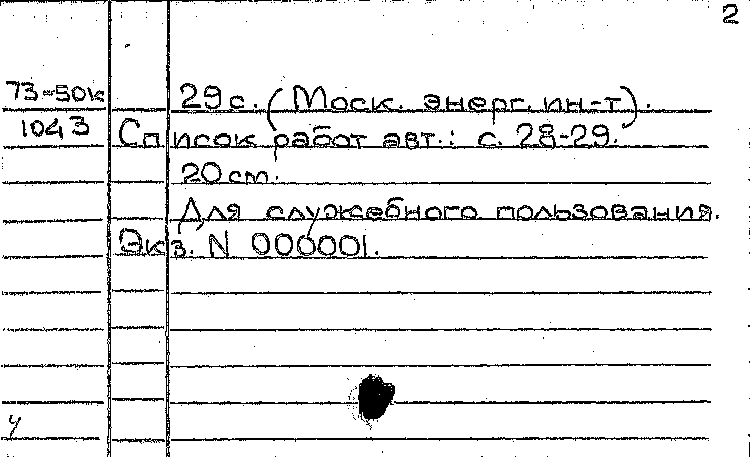 2
73-50к 29 с. (Моск. энерг. ин-т).
1043 Список работ авт.: с. 28-29.
20 см.
Для служебного пользования.
Экз. N 000001.
у